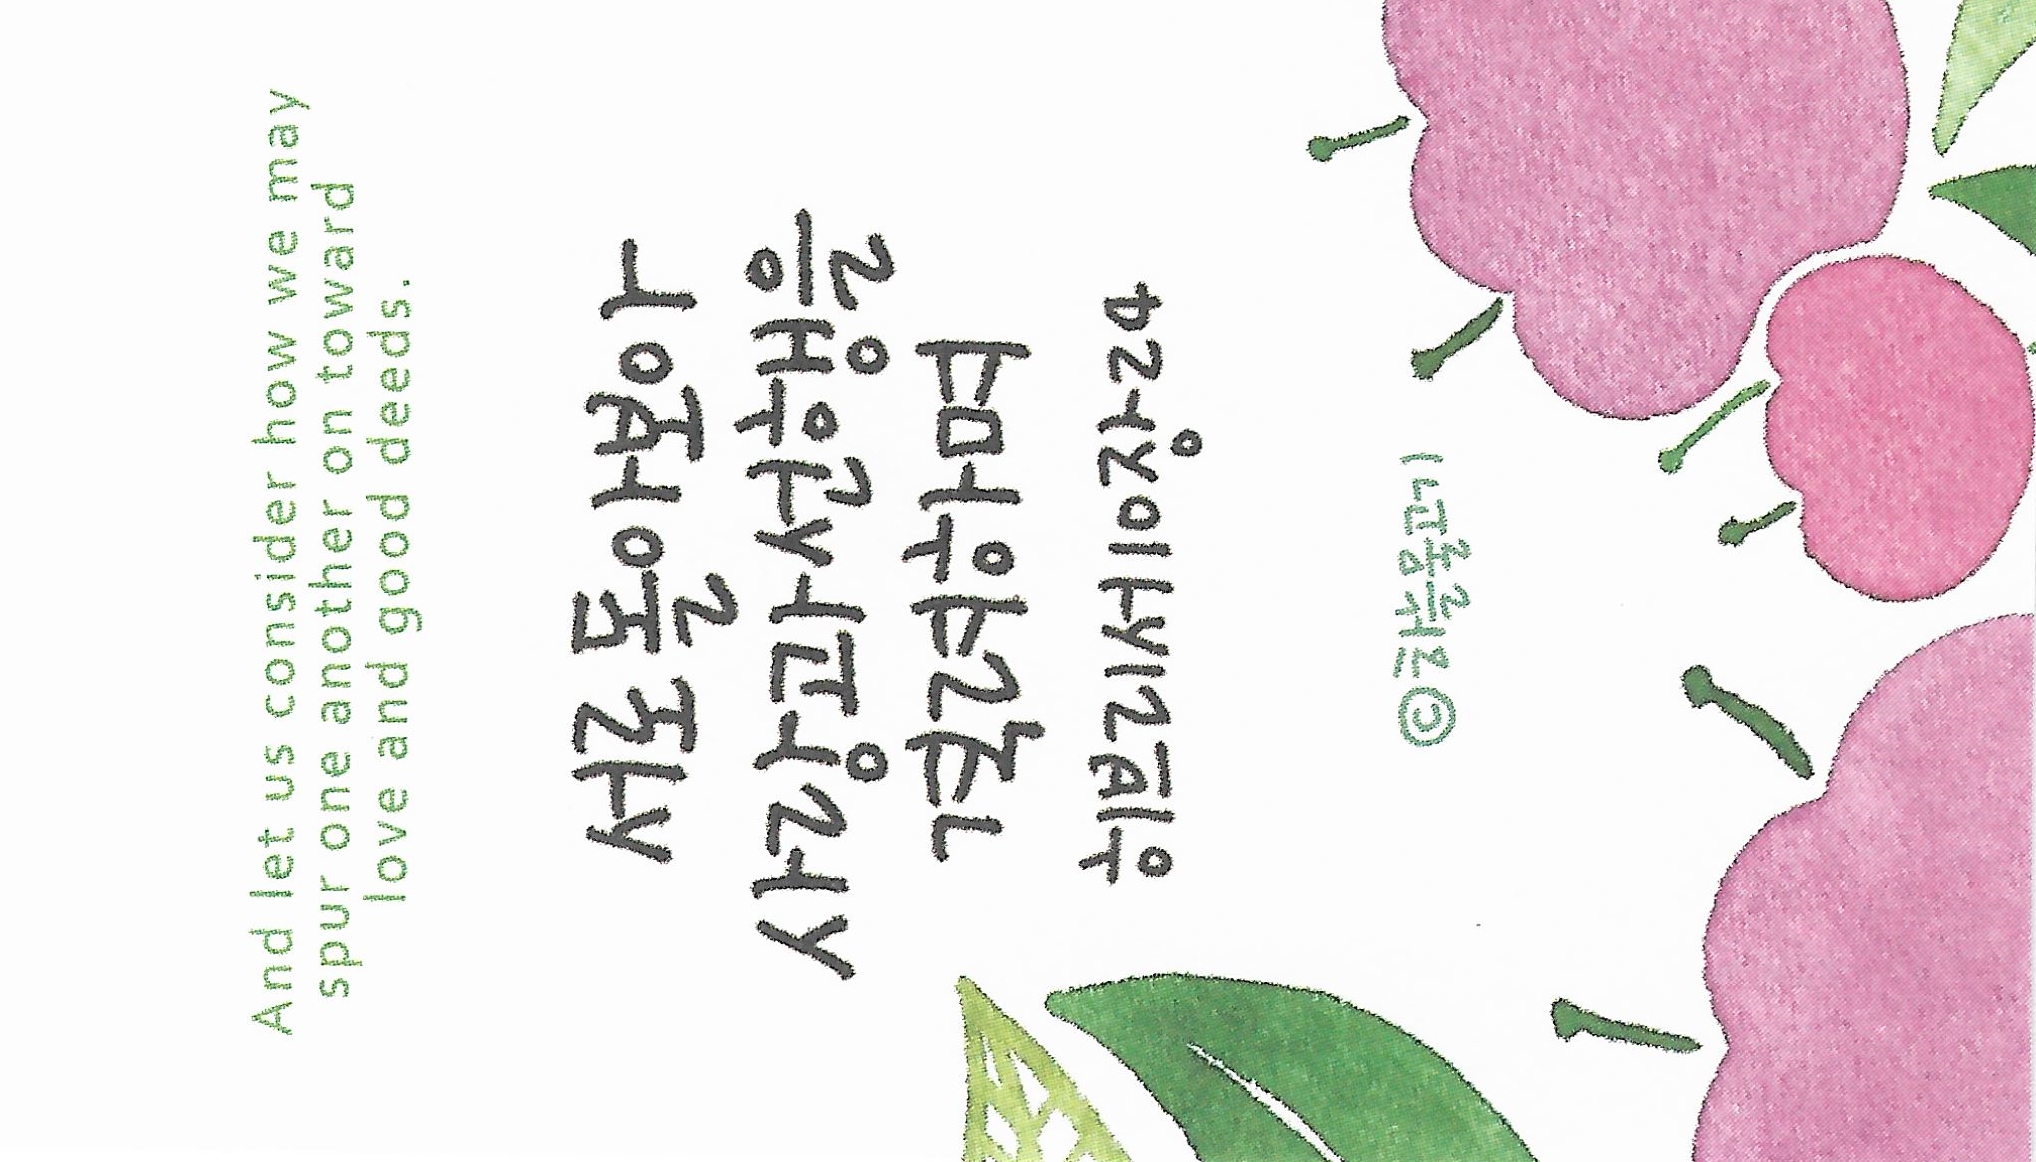 And let us consider how we may
spur one another on toward
love and good deeds.
서로 돌아보아
사랑과 선행을
격려하며
히브리서 10장 24
©하늘물고기